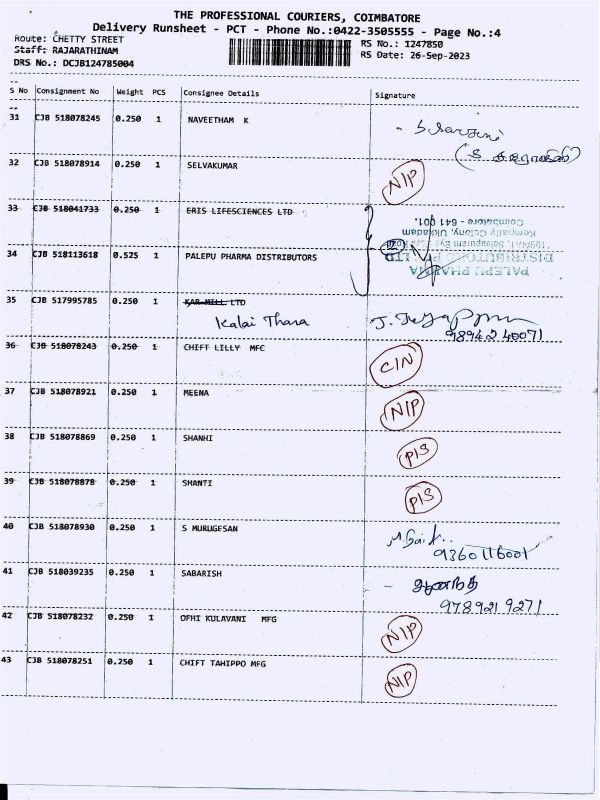 THE PROFESSIONAL COURIERS, COIMBATORE
Delivery Runsheet - PCT - Phone No.:0422-3505555 - Page No.:4
Route: CHETTY STREET RS No.: 1247850
Staff: RAJARATHINAM RS Date: 26-Sep-2023
DRS No.: DCJB124785004
S No Consignment No Weight PCS Consignee Details Signature
31 CJB 518078245 0.250 1 NAVEETHAM K
32 CJB 518078914 0.250 1 SELVAKUMAR N/P
33 CJB 518041733 0.250 1 ERIS LIFESCIENCES LTD
34 CJB 518113618 0.525 1 PALEPU PHARMA DISTRIBUTORS
PALEPU PHARMA
DISTRIBUTORS P LTD
Kompally Colony, Ukkadam
Coimbatore - 641 001.
35 CJB 517995785 0.250 1 KAR MILL LTD
Kalai Thara
98942 40071
36 CJB 518078243 0.250 1 CHIFT LILLY MFC C/N
37 CJB 518078921 0.250 1 MEENA N/P
38 CJB 518078869 0.250 1 SHANHI P/S
39 CJB 518078878 0.250 1 SHANTI P/S
40 CJB 518078930 0.250 1 S MURUGESAN
9360116001
41 CJB 518039235 0.250 1 SABARISH - ஆனந்த்
978921 9271
42 CJB 518078232 0.250 1 OFHI KULAVANI MFG N/P
43 CJB 518078251 0.250 1 CHIFT TAHIPPO MFG N/P